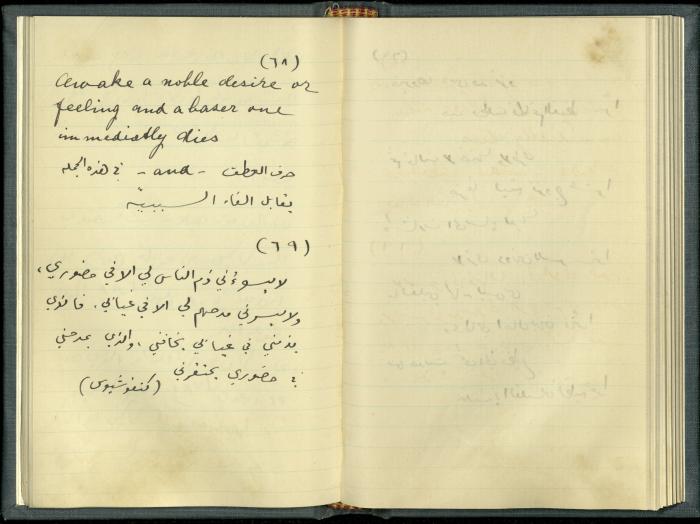 (٦٨)
Awake a noble desire or
feeling and a baser one
immediatly dies
حرف العطف - and - في هذه الجملة
يقابل الفاء السببية
(٦٩)
لا يسوءني ذم الناس لي الا في حضوري،
ولا يسرني مدحهم لي الا في غيابي. فالذي
يذمني في غيابي يخافني، والذي يمدحني
في حضوري يحتقرني
(كنفوشيوس)